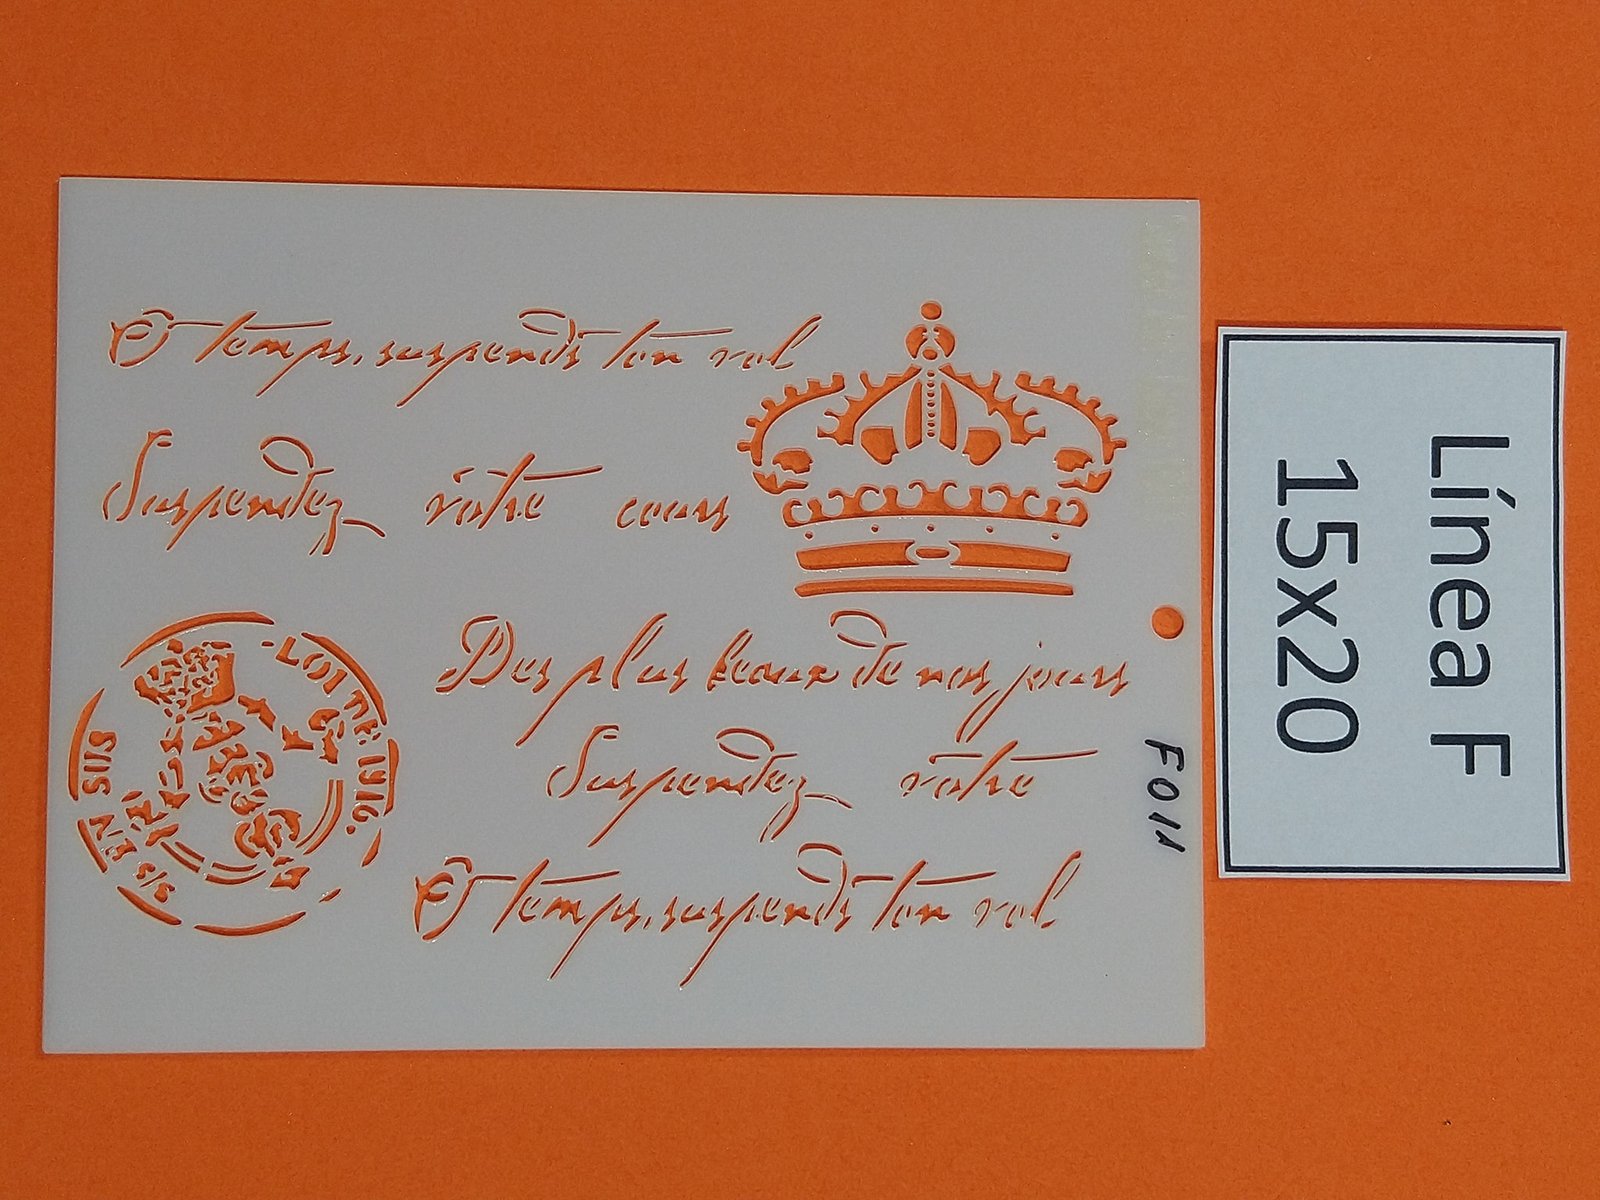 O temps, suspends ton vol
Suspendez votre cours
Des plus beaux de nos jours
Suspendez votre
O temps, suspends ton vol
F011
Línea F
15x20